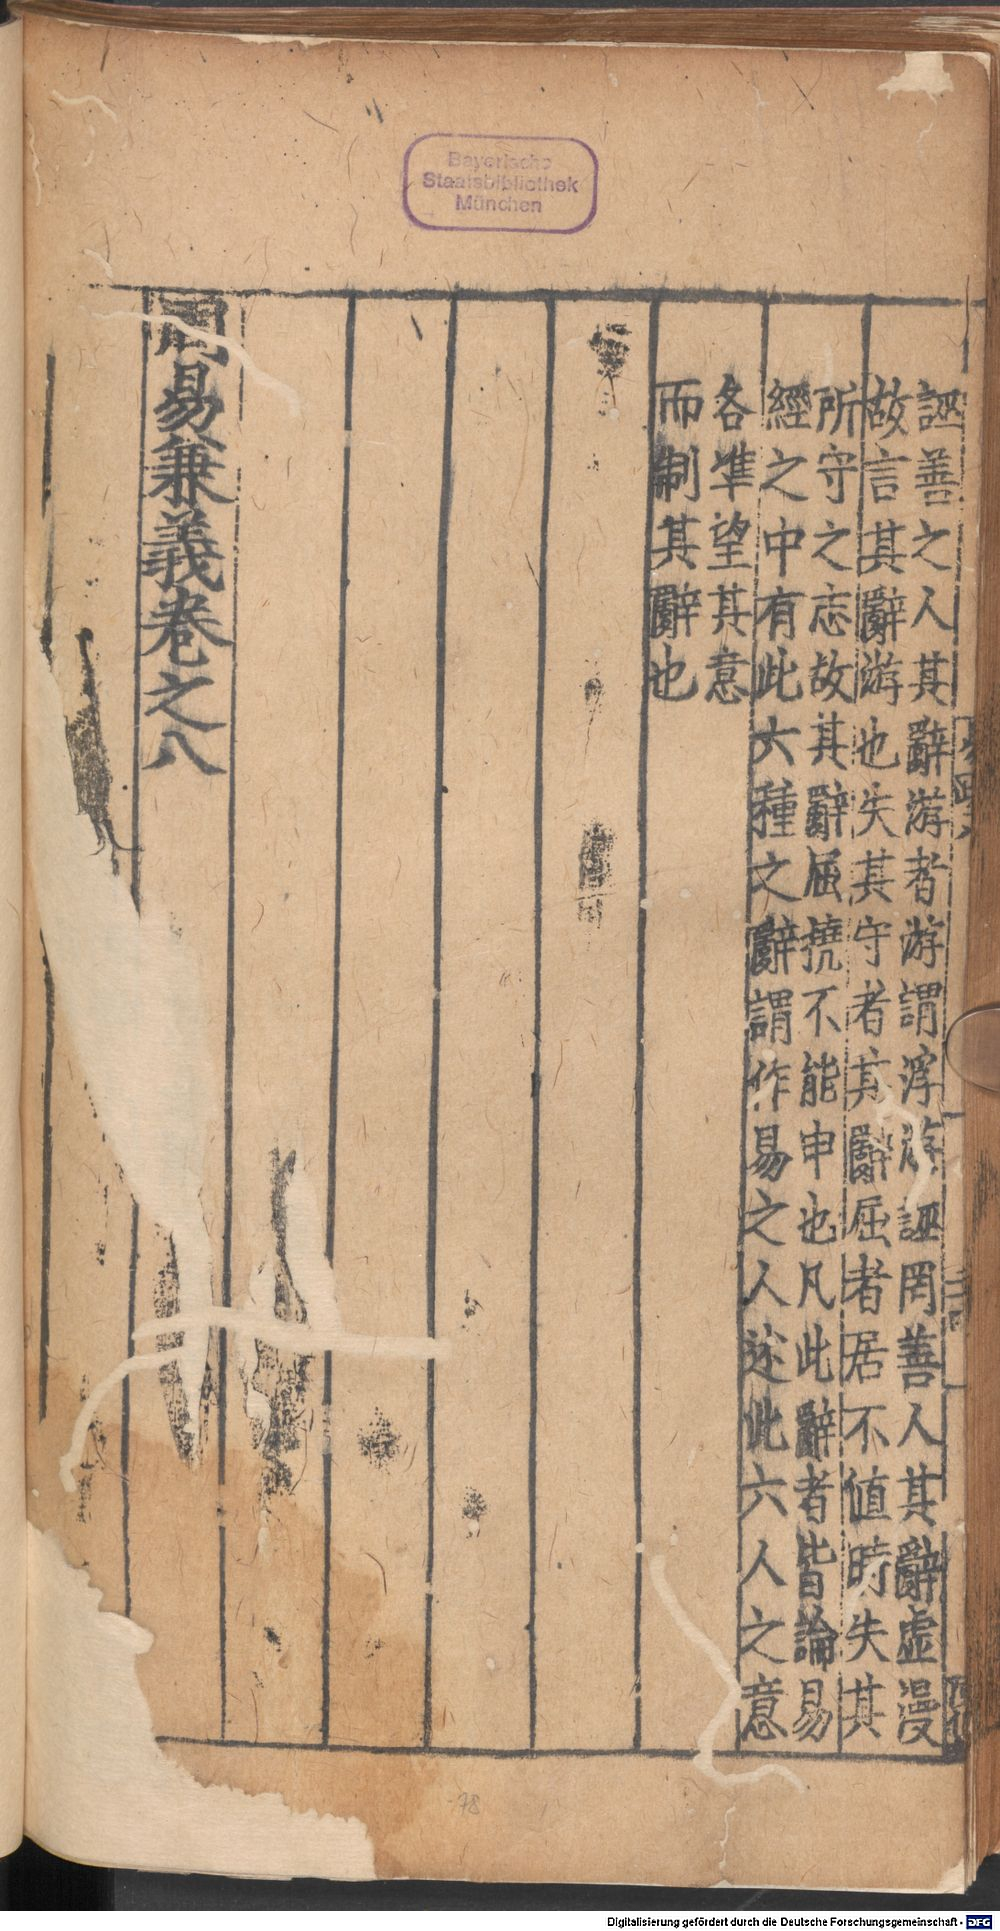 誣善之人其辭游者游謂浮游誣罔善人其辭虛漫
故言其辭游也失其守者其辭屈者居不值時失其
所守之志故其辭屈撓不能申也凡此辭者皆論易
經之中有此六種之辭謂作易之人述此六人之意
各準望其意
而制其辭也
周易兼義卷之八
Bayerische
Staatsbibliothek
München
78
Digitalisierung gefördert durch die Deutsche Forschungsgemeinschaft - DFG